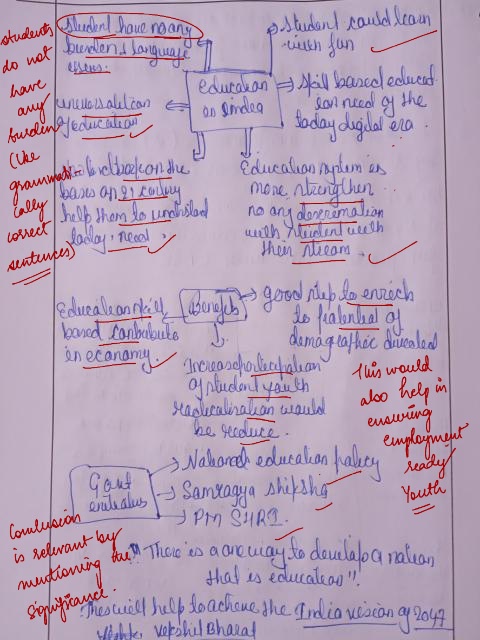 Student have no any
burden & language
issues.
students
do not
have
any
burden
(use
grammati-
cally
correct
sentences)
Student could learn
with fun
Education
in India
Skill based educat
ion need of the
today digital era.
universalition
of education
on the
bases on 21 century
help them to undrstad
today need
Education system is
more strengthen
no any descremation
with student with
their stream.
Benefits
Education skill
based contribute
in economy.
good step to enrich
to potential of
demographic divedend
Increase participation
of student youth
radicalization would
be reduce.
This would
also help in
ensuring
employment
ready
Youth
Govt
initiatives
National education policy
Samragya shiksha
PM SHRI
Conclusion
is relevant by
mentioning the
significance.
"There is a one way to develop a nation
that is education".
This will help to achieve the India vision of 2047
Bharat